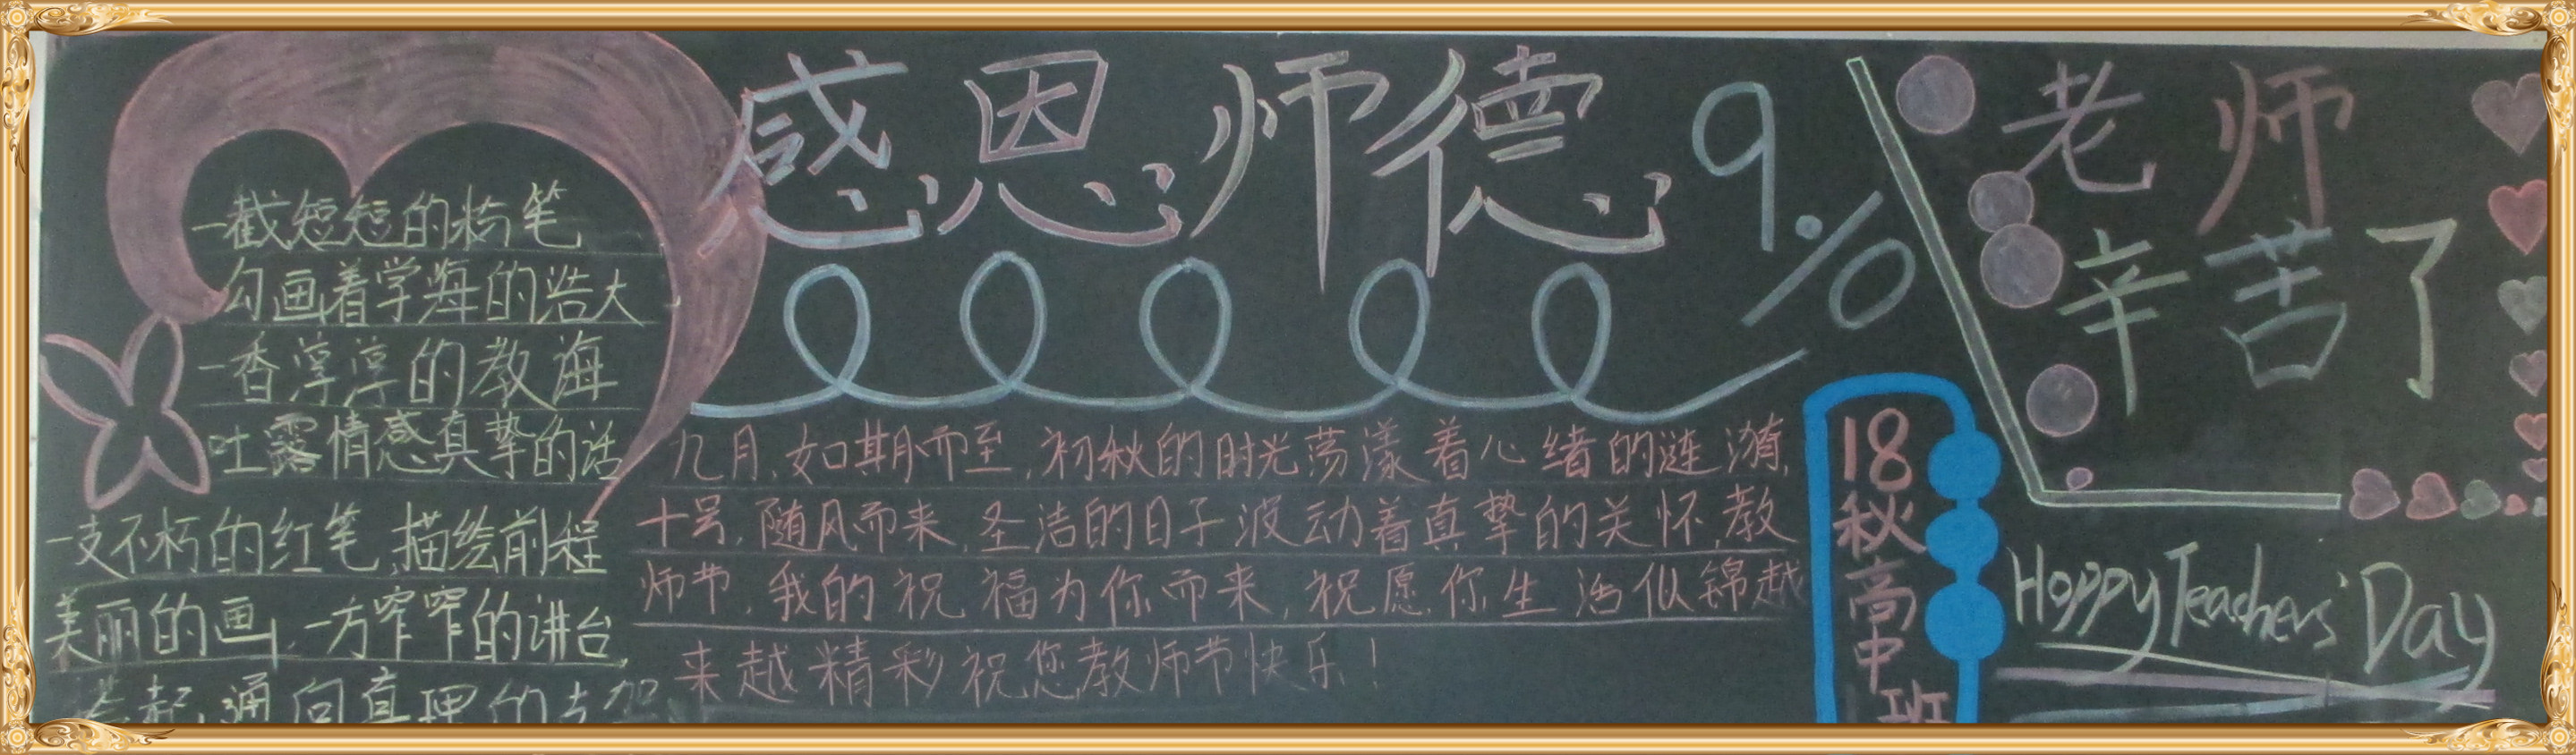 感恩师德
9.10
一截短短的粉笔
勾画着学海的浩大
一香淳淳的教海
吐露情感真挚的话
一支不朽的红笔,描绘前程
美丽的画,一方窄窄的讲台
通向真理的
九月,如期而至,初秋的时光荡漾着心绪的涟漪,
十号,随风而来,圣洁的日子波动着真挚的关怀,教
师节,我的祝福为你而来,祝愿你生活似锦越
来越精彩祝您教师节快乐!
18
秋
高
中
班
老师
辛苦了
Happy Teachers' Day